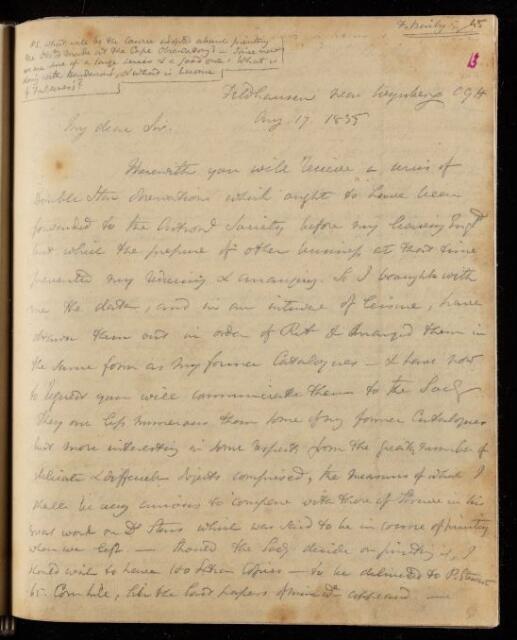 F. Baily Esq
15
PS. What will be the course adopted about printing
the Obsns made at the Cape Observatory? - Since now
we are sure of a large series & a good one. What is
doing with Henderson's, & what is become
of Fallows's?
Feldhausen near Wynberg CGH
Aug 17 1835
My dear Sir.
Herewith you will receive a series of
Double Star observations which ought to have been
forwarded to the Astron Society before my leaving Engd
but which the pressure of other business at that time
prevented my reducing & arranging. So I brought with
me the data, and in an interval of leisure, have
drawn them out in order of RA & arranged them in
the same form as my former Catalogues - & have now
to request you will communicate them to the Socy
They are less numerous than some of my former Catalogues
but more interesting in some respects from the greater number of
delicate & difficult objects comprised, the measures of which I
shall be very curious to compare with those of Struve in his
great work on Dl Stars which was said to be in course of printing
when we left - Should the Socy decide on printing it, I
should wish to have 100 extra copies - to be delivered to P. Stewart
65 Cornhill, like the last papers of mine wh appeared -